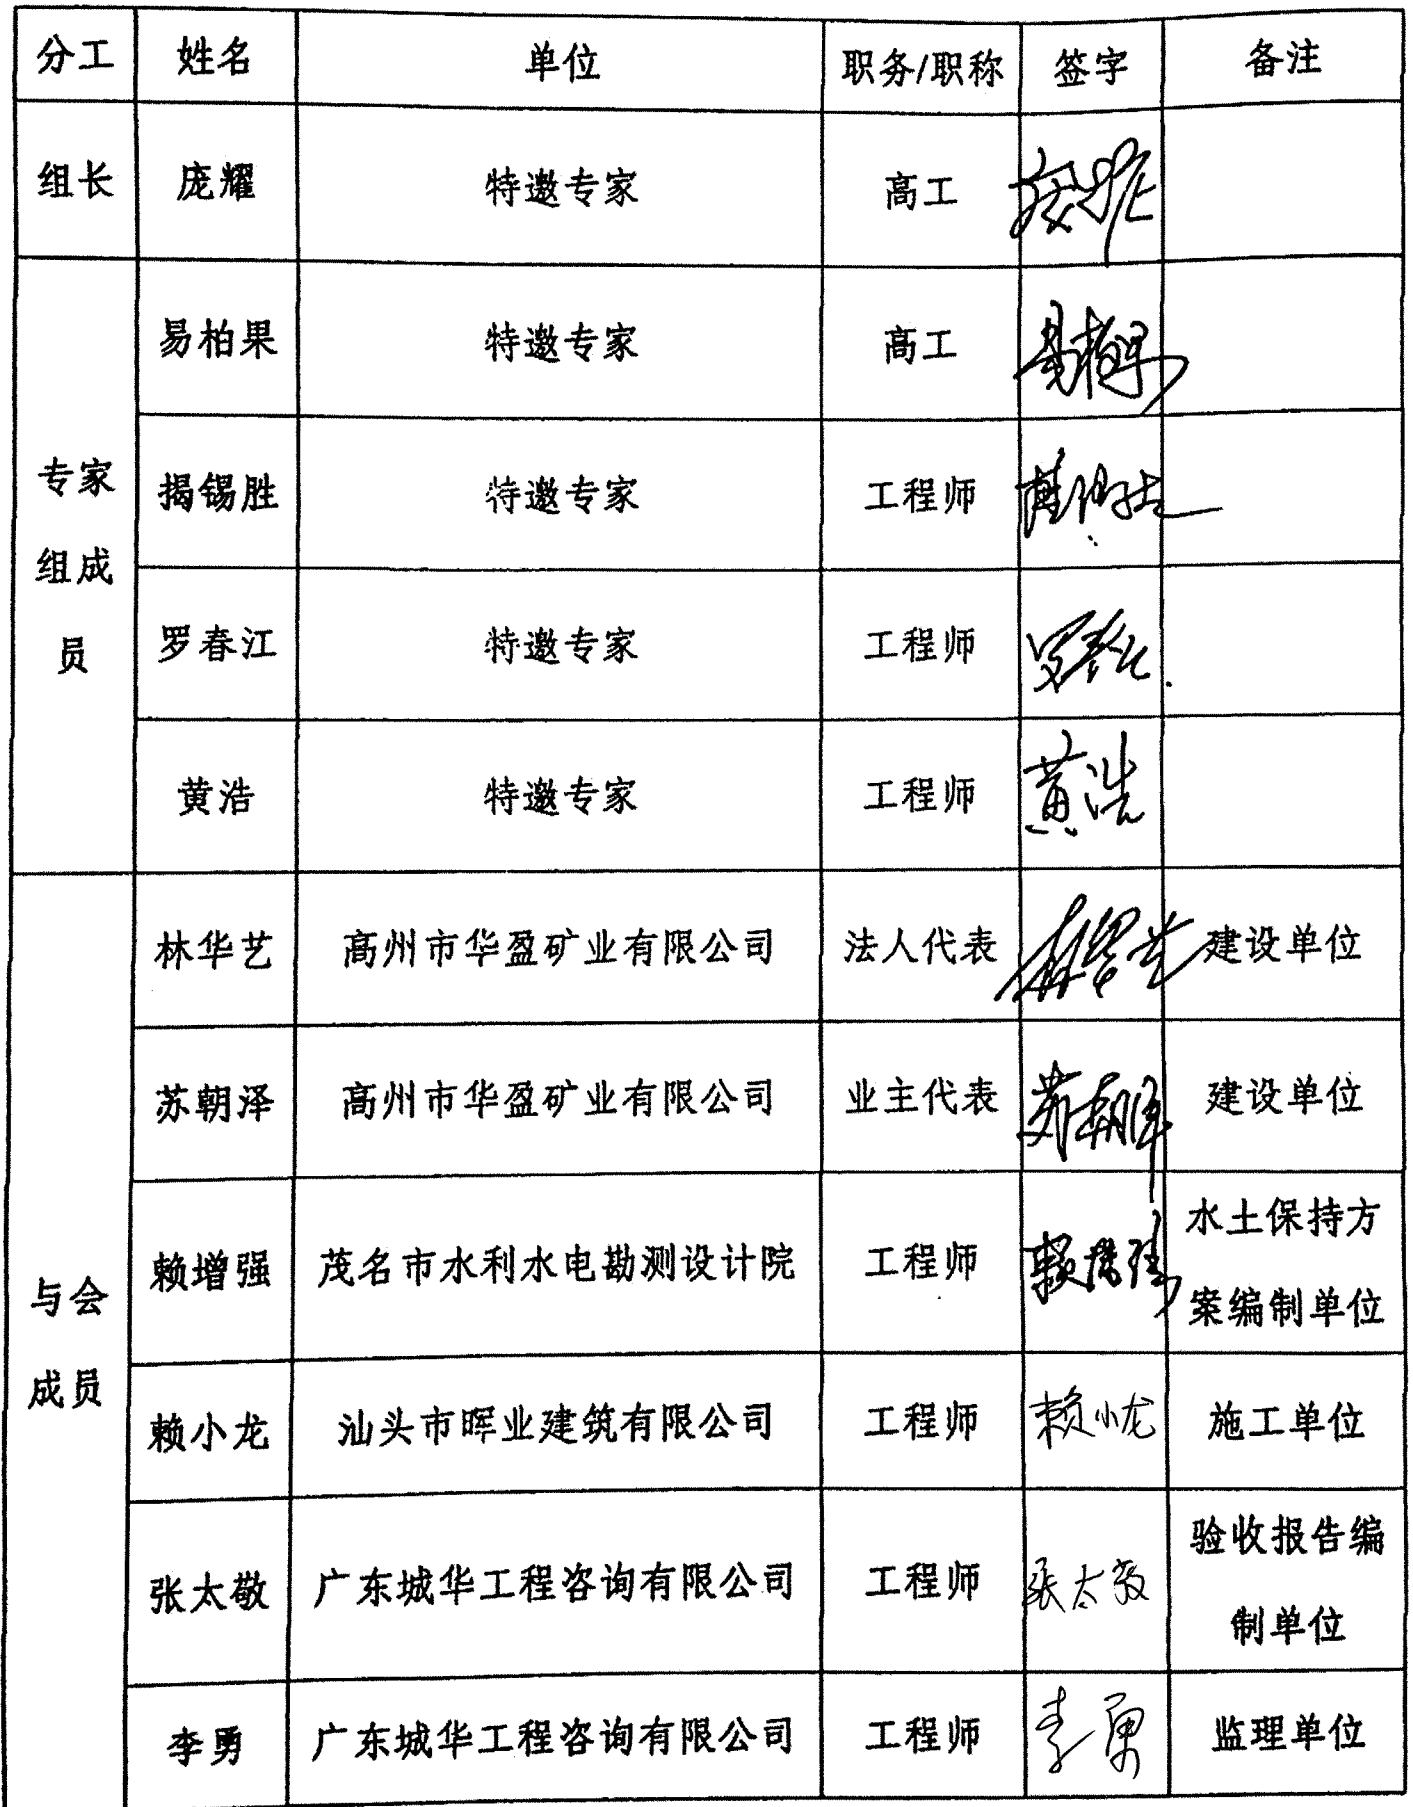 分工 姓名 单位 职务/职称 签字 备注
组长 庞耀 特邀专家 高工
专家
组成
员
易柏果 特邀专家 高工 易柏果
揭锡胜 特邀专家 工程师
罗春江 特邀专家 工程师 罗春江
黄浩 特邀专家 工程师 黄浩
与会
成员
林华艺 高州市华盈矿业有限公司 法人代表 林华艺 建设单位
苏朝泽 高州市华盈矿业有限公司 业主代表 苏朝泽 建设单位
赖增强 茂名市水利水电勘测设计院 工程师 赖增强 水土保持方
案编制单位
赖小龙 汕头市晖业建筑有限公司 工程师 赖小龙 施工单位
张太敬 广东城华工程咨询有限公司 工程师 张太敬 验收报告编
制单位
李勇 广东城华工程咨询有限公司 工程师 李勇 监理单位